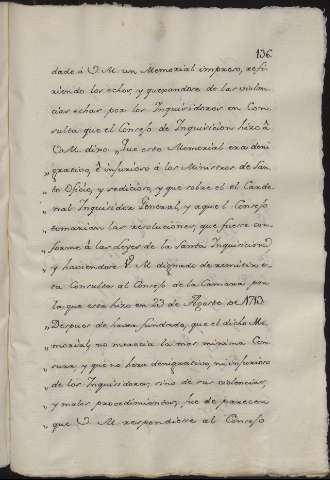 136
dado á V. M. un Memorial impreso, refi-
riendo los echos, y quexandose de las violen-
cias echas por los Inquisidores en Con-
sulta que el Consejo de Inquisicion hizo â
V. M. dixo „Que este Memorial era deni-
„ grativo, è injurioso á los Ministros de San-
„ to Oficio, y sedicioso, y que sobre el el Carde-
„ nal Inquisidor General, y aquel Consejo
„ tomarian las resoluciones, que fuese con-
„ forme à las Leyes de la Santa Inquisicion
„ y haviendose V. M. dignado de remitir es-
„ ta Consulta al Consejo de la Camara, por
„ la que esta hizo en 23 de Agosto de 1713.
„ Despues de haver fundado, que el dicho Me-
„ morial, no merecia la mas minima Cen-
„ sura, y que no hera denigrativo, ni injurioso
„ de los Inquisidores, sino de sus violencias,
„ y malos procedimientos; fue de parecer
„ que V. M. respondiese al Consejo